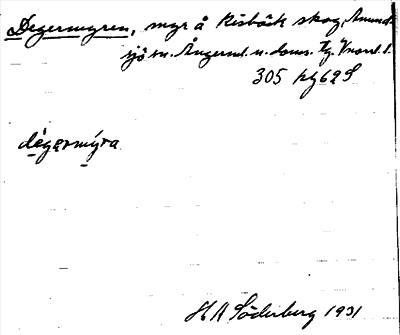 Degermyren, myr å Risbäck skog, Anund-
sjö sn. Ångerml. n. doms. Tg. Vnorrl.
305 kg 62 S
dégermýra
H A Söderberg 1931